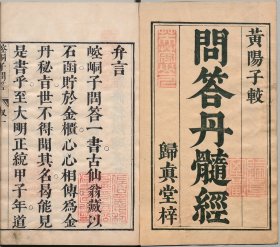 黃陽子較
問答丹髓經
歸真堂梓
弁言
崆峒子問答一書古仙翁藏以
石函貯於金櫃心心相傳為金
丹秘旨世不得聞其名曷能見
是書乎至大明正統甲子年道